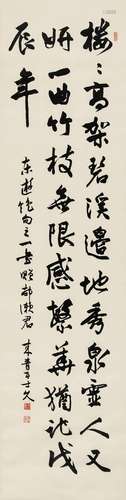 楼〻高架碧溪邊地秀泉靈人又
妍一曲竹枝無限感繁華猶記戊
辰年
東遊絕句之一書贈瀨君